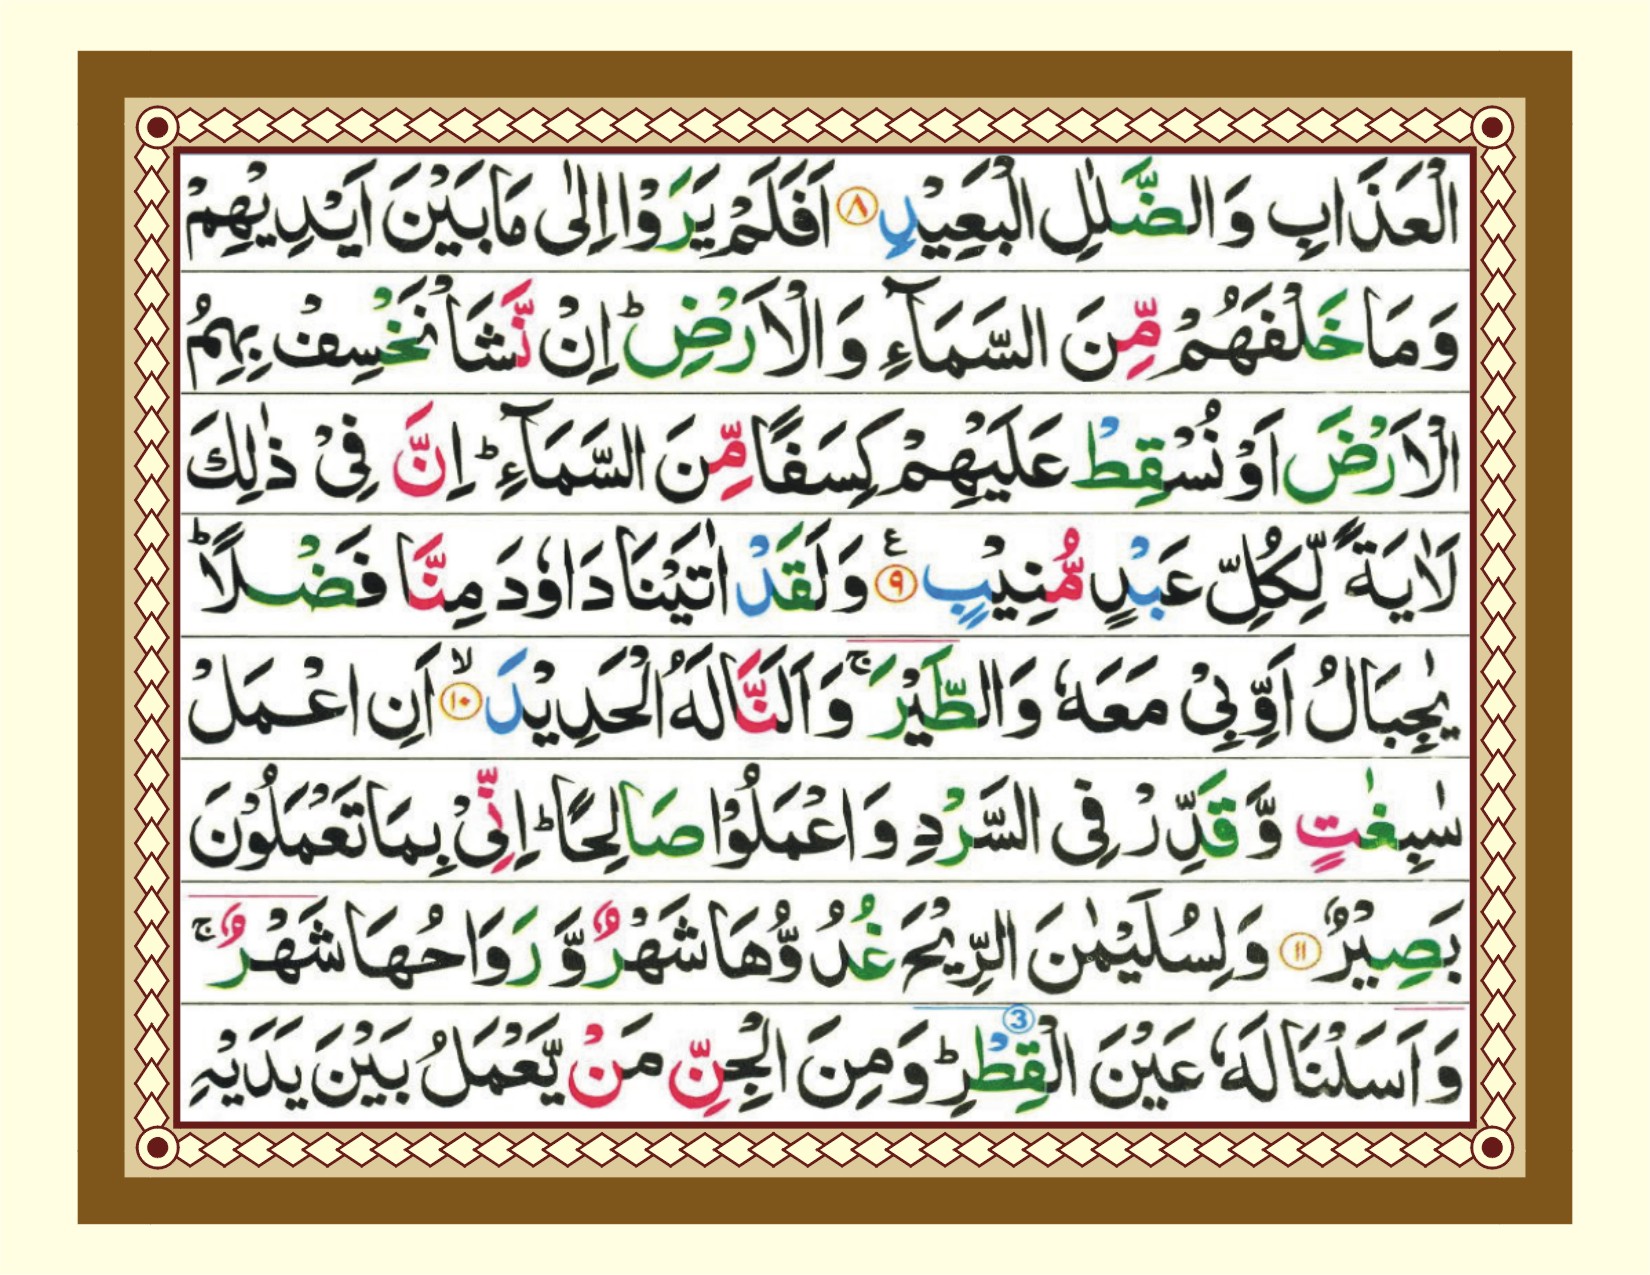 الْعَذَابِ وَالضَّلٰلِ الْبَعِيْدِ ۝۸ اَفَلَمْ يَرَوْا اِلٰى مَا بَيْنَ اَيْدِيْهِمْ
وَمَا خَلْفَهُمْ مِّنَ السَّمَآءِ وَالْاَرْضِ ؕ اِنْ نَّشَاْ نَخْسِفْ بِهِمُ
الْاَرْضَ اَوْ نُسْقِطْ عَلَيْهِمْ كِسَفًا مِّنَ السَّمَآءِ ؕ اِنَّ فِيْ ذٰلِكَ
لَاٰيَةً لِّكُلِّ عَبْدٍ مُّنِيْبٍ ۝۹ ع وَلَقَدْ اٰتَيْنَا دَاوٗدَ مِنَّا فَضْلًا ؕ
يٰجِبَالُ اَوِّبِيْ مَعَهٗ وَالطَّيْرَ ۚ وَاَلَنَّا لَهُ الْحَدِيْدَ ۙ ۝۱۰ اَنِ اعْمَلْ
سٰبِغٰتٍ وَّقَدِّرْ فِى السَّرْدِ وَاعْمَلُوْا صَالِحًا ؕ اِنِّيْ بِمَا تَعْمَلُوْنَ
بَصِيْرٌ ۝۱۱ وَلِسُلَيْمٰنَ الرِّيْحَ غُدُوُّهَا شَهْرٌ وَّرَوَاحُهَا شَهْرٌ ۚ
وَاَسَلْنَا لَهٗ عَيْنَ الْقِطْرِ ؕ 3 وَمِنَ الْجِنِّ مَنْ يَّعْمَلُ بَيْنَ يَدَيْهِ